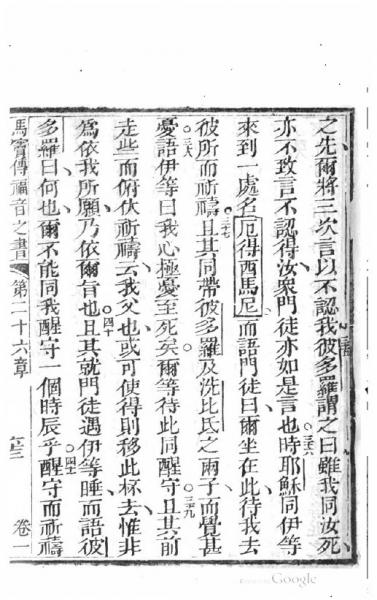 之先爾將三次言以不認我彼多羅謂之曰雖我同汝死
亦不致言不認得汝衆門徒亦如是言也時耶穌同伊等
來到一處名厄得西馬尼而語門徒曰爾坐在此待我去
彼所而祈禱且其同帶彼多羅及洗比氏之兩子而覺甚
憂語伊等曰我心極憂至死矣爾等待此同醒守且其前
走些而俯伏祈禱云我父也或可使得則移此杯去惟非
為依我所願乃依爾旨也且其就門徒遇伊等睡而語彼
多羅曰何也爾不能同我醒守一個時辰乎醒守而祈禱
馬竇傳福音之書 第二十六章 卷一
Google